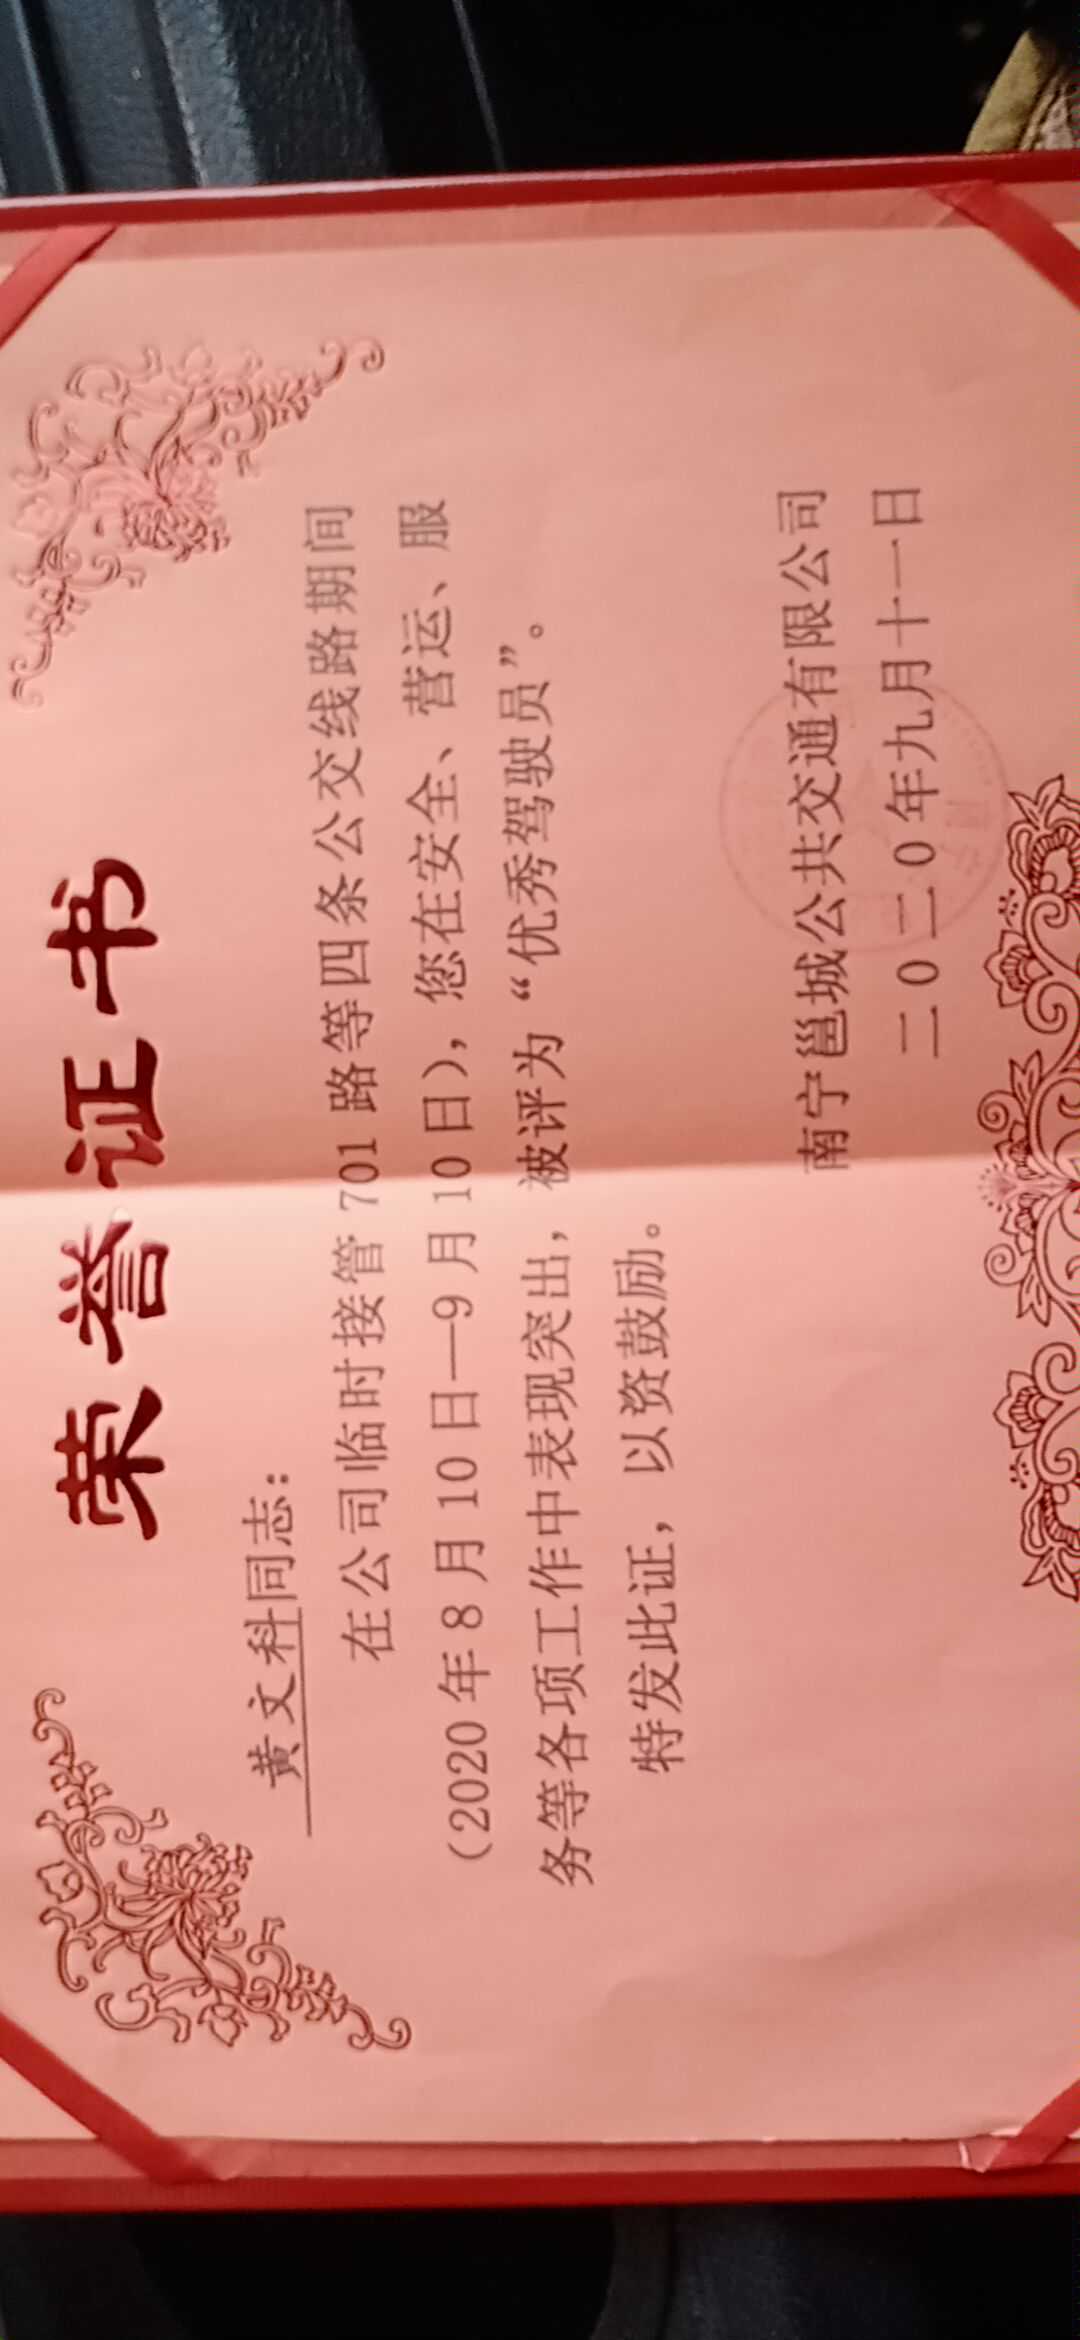 荣誉证书
黄文科同志：
在公司临时接管 701 路等四条公交线路期间
（2020 年 8 月 10 日—9 月 10 日），您在安全、营运、服
务等各项工作中表现突出，被评为“优秀驾驶员”。
特发此证，以资鼓励。
南宁邕城公共交通有限公司
二0二0年九月十一日